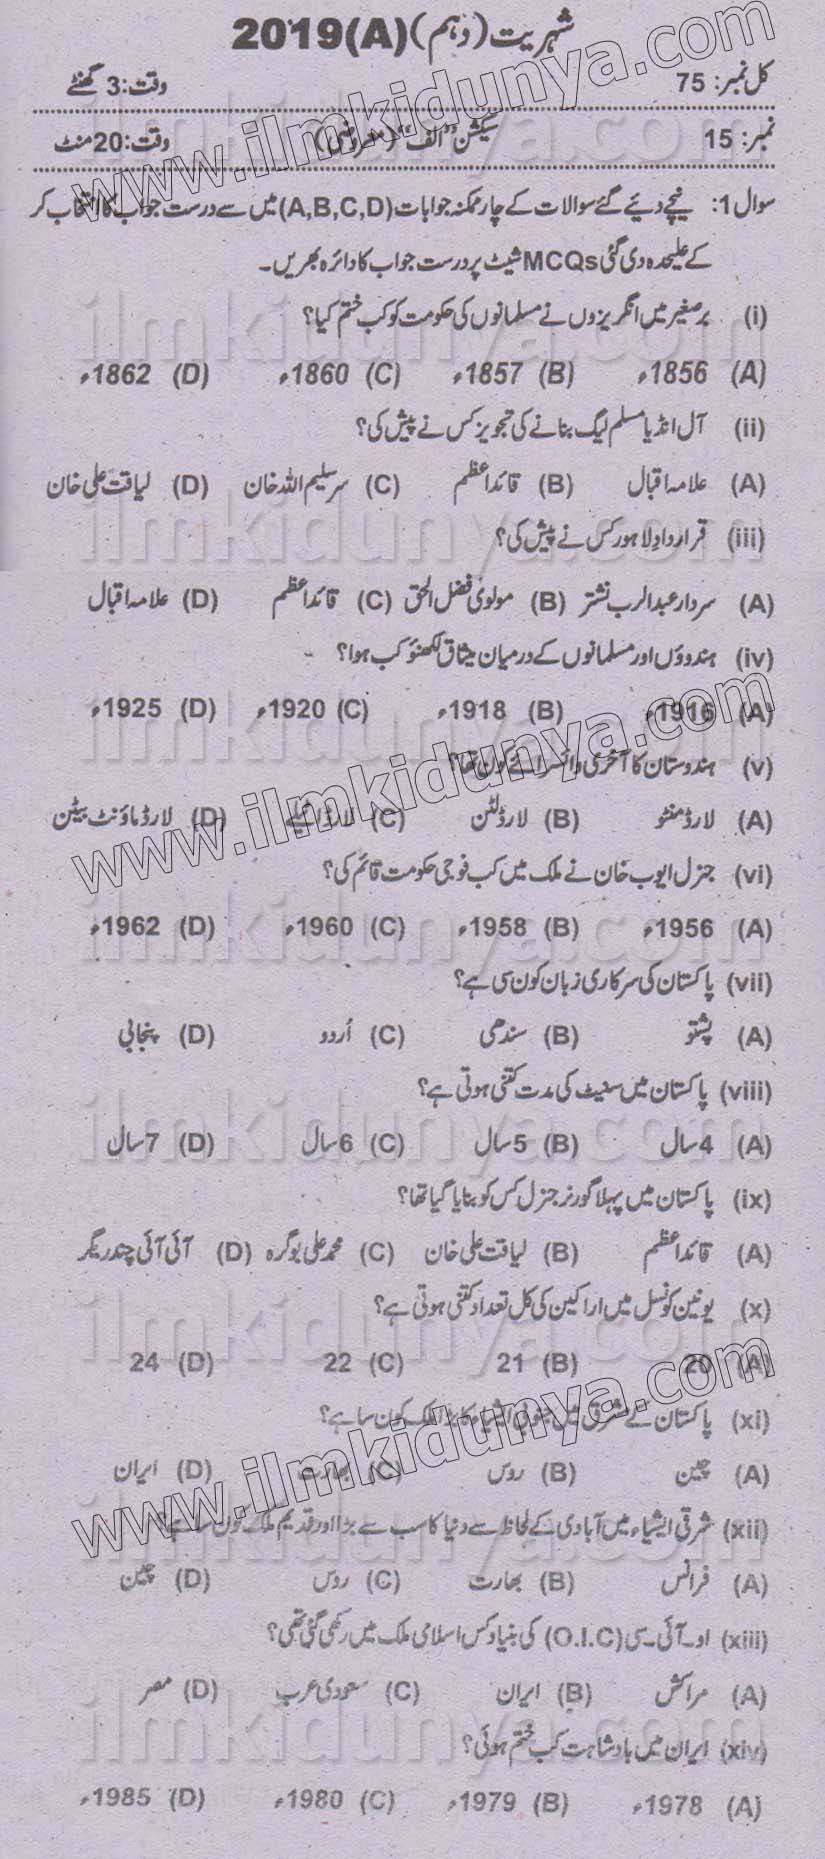 شہریت (دہم) (A)2019
کل نمبر: 75 وقت: 3 گھنٹے
نمبر: 15 سیکشن "الف" (معروضی) وقت: 20 منٹ
سوال 1: نیچے دیئے گئے سوالات کے چار ممکنہ جوابات (A,B,C,D) میں سے درست جواب کا انتخاب کر
کے علیحدہ دی گئی MCQs شیٹ پر درست جواب کا دائرہ بھریں۔
(i) برصغیر میں انگریزوں نے مسلمانوں کی حکومت کو کب ختم کیا؟
(A) 1856ء (B) 1857ء (C) 1860ء (D) 1862ء
(ii) آل انڈیا مسلم لیگ بنانے کی تجویز کس نے پیش کی؟
(A) علامہ اقبال (B) قائداعظم (C) سر سلیم اللہ خان (D) لیاقت علی خان
(iii) قرارداد لاہور کس نے پیش کی؟
(A) سردار عبدالرب نشتر (B) مولوی فضل الحق (C) قائداعظم (D) علامہ اقبال
(iv) ہندوؤں اور مسلمانوں کے درمیان میثاق لکھنؤ کب ہوا؟
(A) 1916ء (B) 1918ء (C) 1920ء (D) 1925ء
(v) ہندوستان کا آخری وائسرائے کون تھا؟
(A) لارڈ منٹو (B) لارڈ لٹن (C) لارڈ ایٹلے (D) لارڈ ماؤنٹ بیٹن
(vi) جنرل ایوب خان نے ملک میں کب فوجی حکومت قائم کی؟
(A) 1956ء (B) 1958ء (C) 1960ء (D) 1962ء
(vii) پاکستان کی سرکاری زبان کون سی ہے؟
(A) پشتو (B) سندھی (C) اُردو (D) پنجابی
(viii) پاکستان میں سنیٹ کی مدت کتنی ہوتی ہے؟
(A) 4 سال (B) 5 سال (C) 6 سال (D) 7 سال
(ix) پاکستان میں پہلا گورنر جنرل کس کو بنایا گیا تھا؟
(A) قائداعظم (B) لیاقت علی خان (C) محمد علی بوگرہ (D) آئی آئی چندریگر
(x) یونین کونسل میں اراکین کی کل تعداد کتنی ہوتی ہے؟
(A) 20 (B) 21 (C) 22 (D) 24
(xi) پاکستان کے مشرق میں جنوبی ایشیاء کا بڑا ملک کون سا ہے؟
(A) چین (B) روس (C) بھارت (D) ایران
(xii) شرقی ایشیاء میں آبادی کے لحاظ سے دنیا کا سب سے بڑا اور قدیم ملک کون سا ہے؟
(A) فرانس (B) بھارت (C) روس (D) چین
(xiii) او۔آئی۔سی (O.I.C) کی بنیاد کس اسلامی ملک میں رکھی گئی تھی؟
(A) مراکش (B) ایران (C) سعودی عرب (D) مصر
(xiv) ایران میں بادشاہت کب ختم ہوئی؟
(A) 1978ء (B) 1979ء (C) 1980ء (D) 1985ء
www.ilmkidunya.com
www.ilmkidunya.com
www.ilmkidunya.com